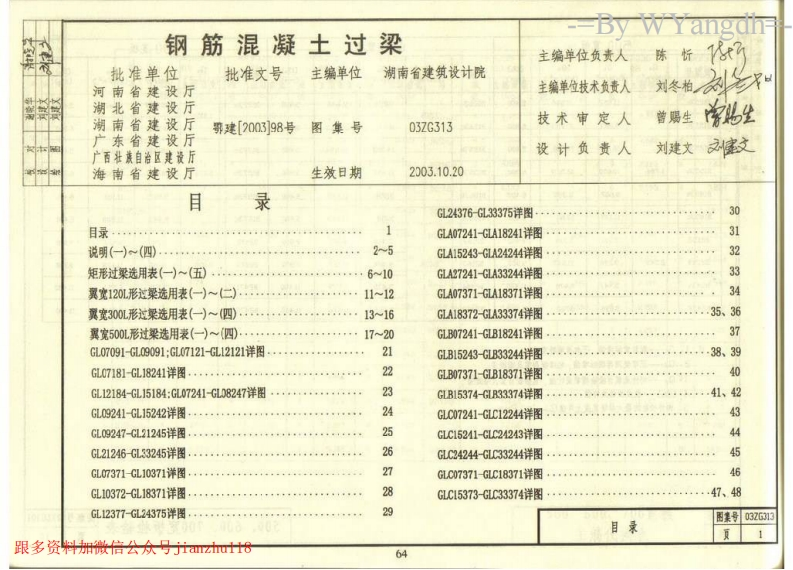 -=By WYangdh=-
钢筋混凝土过梁
批准单位 批准文号 主编单位 湖南省建筑设计院
河南省建设厅
湖北省建设厅
湖南省建设厅 鄂建[2003]98号 图集号 03ZG313
广东省建设厅
广西壮族自治区建设厅
海南省建设厅 生效日期 2003.10.20
主编单位负责人 陈忻
主编单位技术负责人 刘冬柏
技术审定人 曾赐生
设计负责人 刘建文 刘建文
目录
目录 1
说明(一)~(四) 2~5
矩形过梁选用表(一)~(五) 6~10
翼宽120L形过梁选用表(一)~(二) 11~12
翼宽300L形过梁选用表(一)~(四) 13~16
翼宽500L形过梁选用表(一)~(四) 17~20
GL07091-GL09091;GL07121-GL12121详图 21
GL07181-GL18241详图 22
GL12184-GL15184;GL07241-GL08247详图 23
GL09241-GL15242详图 24
GL09247-GL21245详图 25
GL21246-GL33245详图 26
GL07371-GL10371详图 27
GL10372-GL18371详图 28
GL12377-GL24375详图 29
GL24376-GL33375详图 30
GLA07241-GLA18241详图 31
GLA15243-GLA24244详图 32
GLA27241-GLA33244详图 33
GLA07371-GLA18371详图 34
GLA18372-GLA33374详图 35、36
GLB07241-GLB18241详图 37
GLB15243-GLB33244详图 38、39
GLB07371-GLB18371详图 40
GLB15374-GLB33374详图 41、42
GLC07241-GLC12244详图 43
GLC15241-GLC24243详图 44
GLC24244-GLC33244详图 45
GLC07371-GLC18371详图 46
GLC15373-GLC33374详图 47、48
目录 图集号 03ZG313
页 1
跟多资料加微信公众号jianzhu118
64